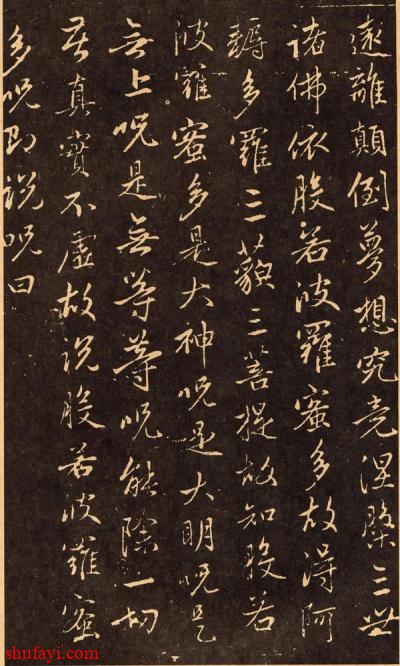 遠離顛倒夢想究竟涅槃三世
諸佛依般若波羅蜜多故得阿
耨多羅三藐三菩提故知般若
波羅蜜多是大神呪是大明呪是
無上呪是無等等呪能除一切
苦真實不虛故說般若波羅蜜
多呪即說呪曰
shufayi.com